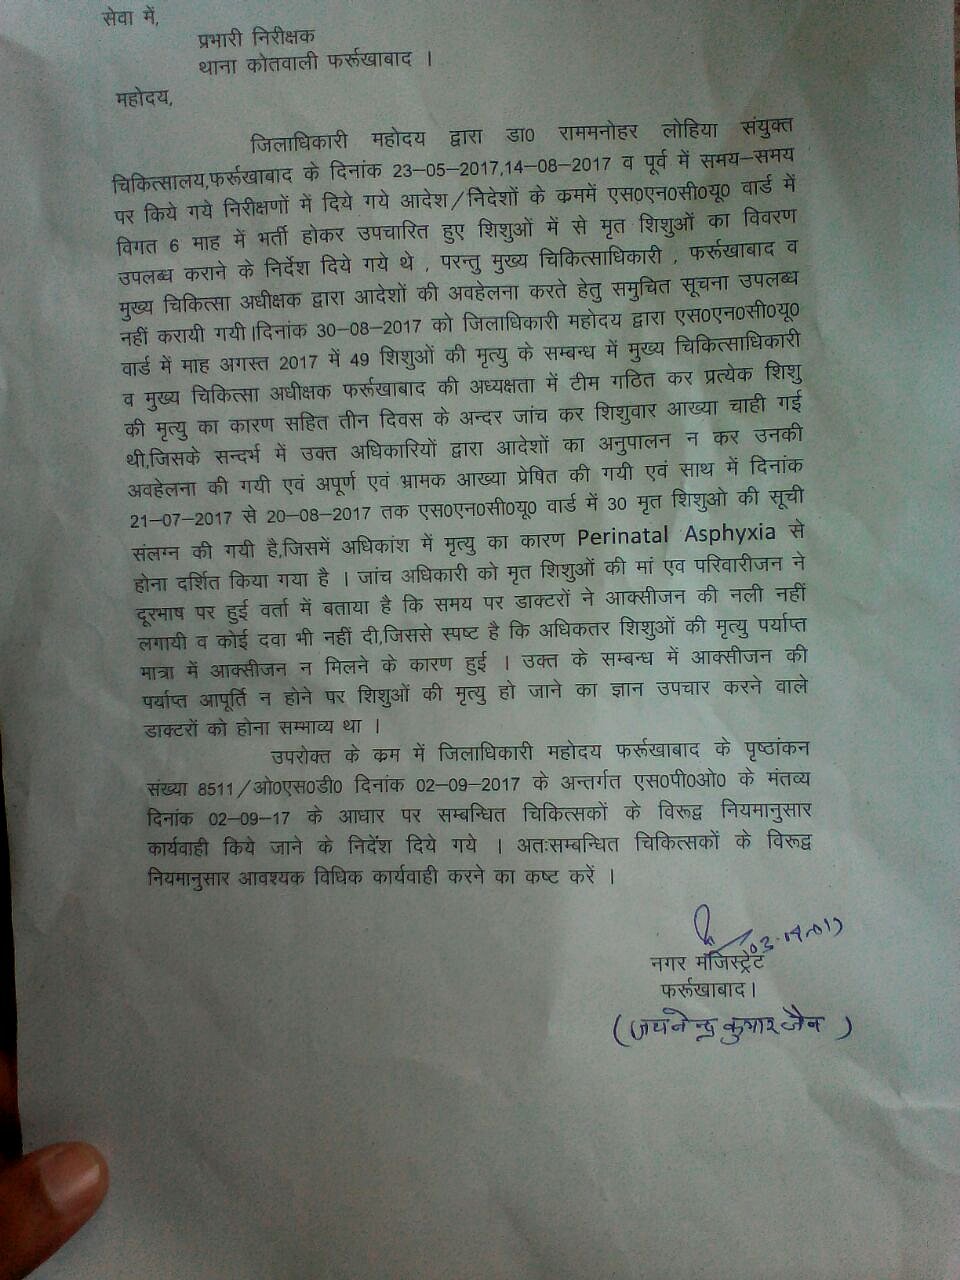 सेवा में,
प्रभारी निरीक्षक
थाना कोतवाली फर्रूखाबाद ।
महोदय,
जिलाधिकारी महोदय द्वारा डा0 राममनोहर लोहिया संयुक्त
चिकित्सालय,फर्रूखाबाद के दिनांक 23-05-2017,14-08-2017 व पूर्व में समय-समय
पर किये गये निरीक्षणों में दिये गये आदेश/निेदेशों के कममें एस0एन0सी0यू0 वार्ड में
विगत 6 माह में भर्ती होकर उपचारित हुए शिशुओं में से मृत शिशुओं का विवरण
उपलब्ध कराने के निर्देश दिये गये थे , परन्तु मुख्य चिकित्साधिकारी , फर्रूखाबाद व
मुख्य चिकित्सा अधीक्षक द्वारा आदेशों की अवहेलना करते हेतु समुचित सूचना उपलब्ध
नहीं करायी गयी।दिनांक 30-08-2017 को जिलाधिकारी महोदय द्वारा एस0एन0सी0यू0
वार्ड में माह अगस्त 2017 में 49 शिशुओं की मृत्यु के सम्बन्ध में मुख्य चिकित्साधिकारी
व मुख्य चिकित्सा अधीक्षक फर्रूखाबाद की अध्यक्षता में टीम गठित कर प्रत्येक शिशु
की मृत्यु का कारण सहित तीन दिवस के अन्दर जांच कर शिशुवार आख्या चाही गई
थी,जिसके सन्दर्भ में उक्त अधिकारियों द्वारा आदेशों का अनुपालन न कर उनकी
अवहेलना की गयी एवं अपूर्ण एवं भ्रामक आख्या प्रेषित की गयी एवं साथ में दिनांक
21-07-2017 से 20-08-2017 तक एस0एन0सी0यू0 वार्ड में 30 मृत शिशुओ की सूची
संलग्न की गयी है,जिसमें अधिकांश में मृत्यु का कारण Perinatal Asphyxia से
होना दर्शित किया गया है । जांच अधिकारी को मृत शिशुओं की मां एव परिवारीजन ने
दूरभाष पर हुई वर्ता में बताया है कि समय पर डाक्टरों ने आक्सीजन की नली नहीं
लगायी व कोई दवा भी नहीं दी,जिससे स्पष्ट है कि अधिकतर शिशुओं की मृत्यु पर्याप्त
मात्रा में आक्सीजन न मिलने के कारण हुई । उक्त के सम्बन्ध में आक्सीजन की
पर्याप्त आपूर्ति न होने पर शिशुओं की मृत्यु हो जाने का ज्ञान उपचार करने वाले
डाक्टरों को होना सम्भाव्य था ।
उपरोक्त के कम में जिलाधिकारी महोदय फर्रूखाबाद के पृष्ठांकन
संख्या 8511/ओ0एस0डी0 दिनांक 02-09-2017 के अन्तर्गत एस0पी0ओ0 के मंतव्य
दिनांक 02-09-17 के आधार पर सम्बन्धित चिकित्सकों के विरूद्व नियमानुसार
कार्यवाही किये जाने के निदेंश दिये गये । अतःसम्बन्धित चिकित्सकों के विरूद्व
नियमानुसार आवश्यक विधिक कार्यवाही करने का कष्ट करें ।
नगर मजिस्ट्रेट
फर्रूखाबाद।
(जयनेन्द्र कुमार जैन)